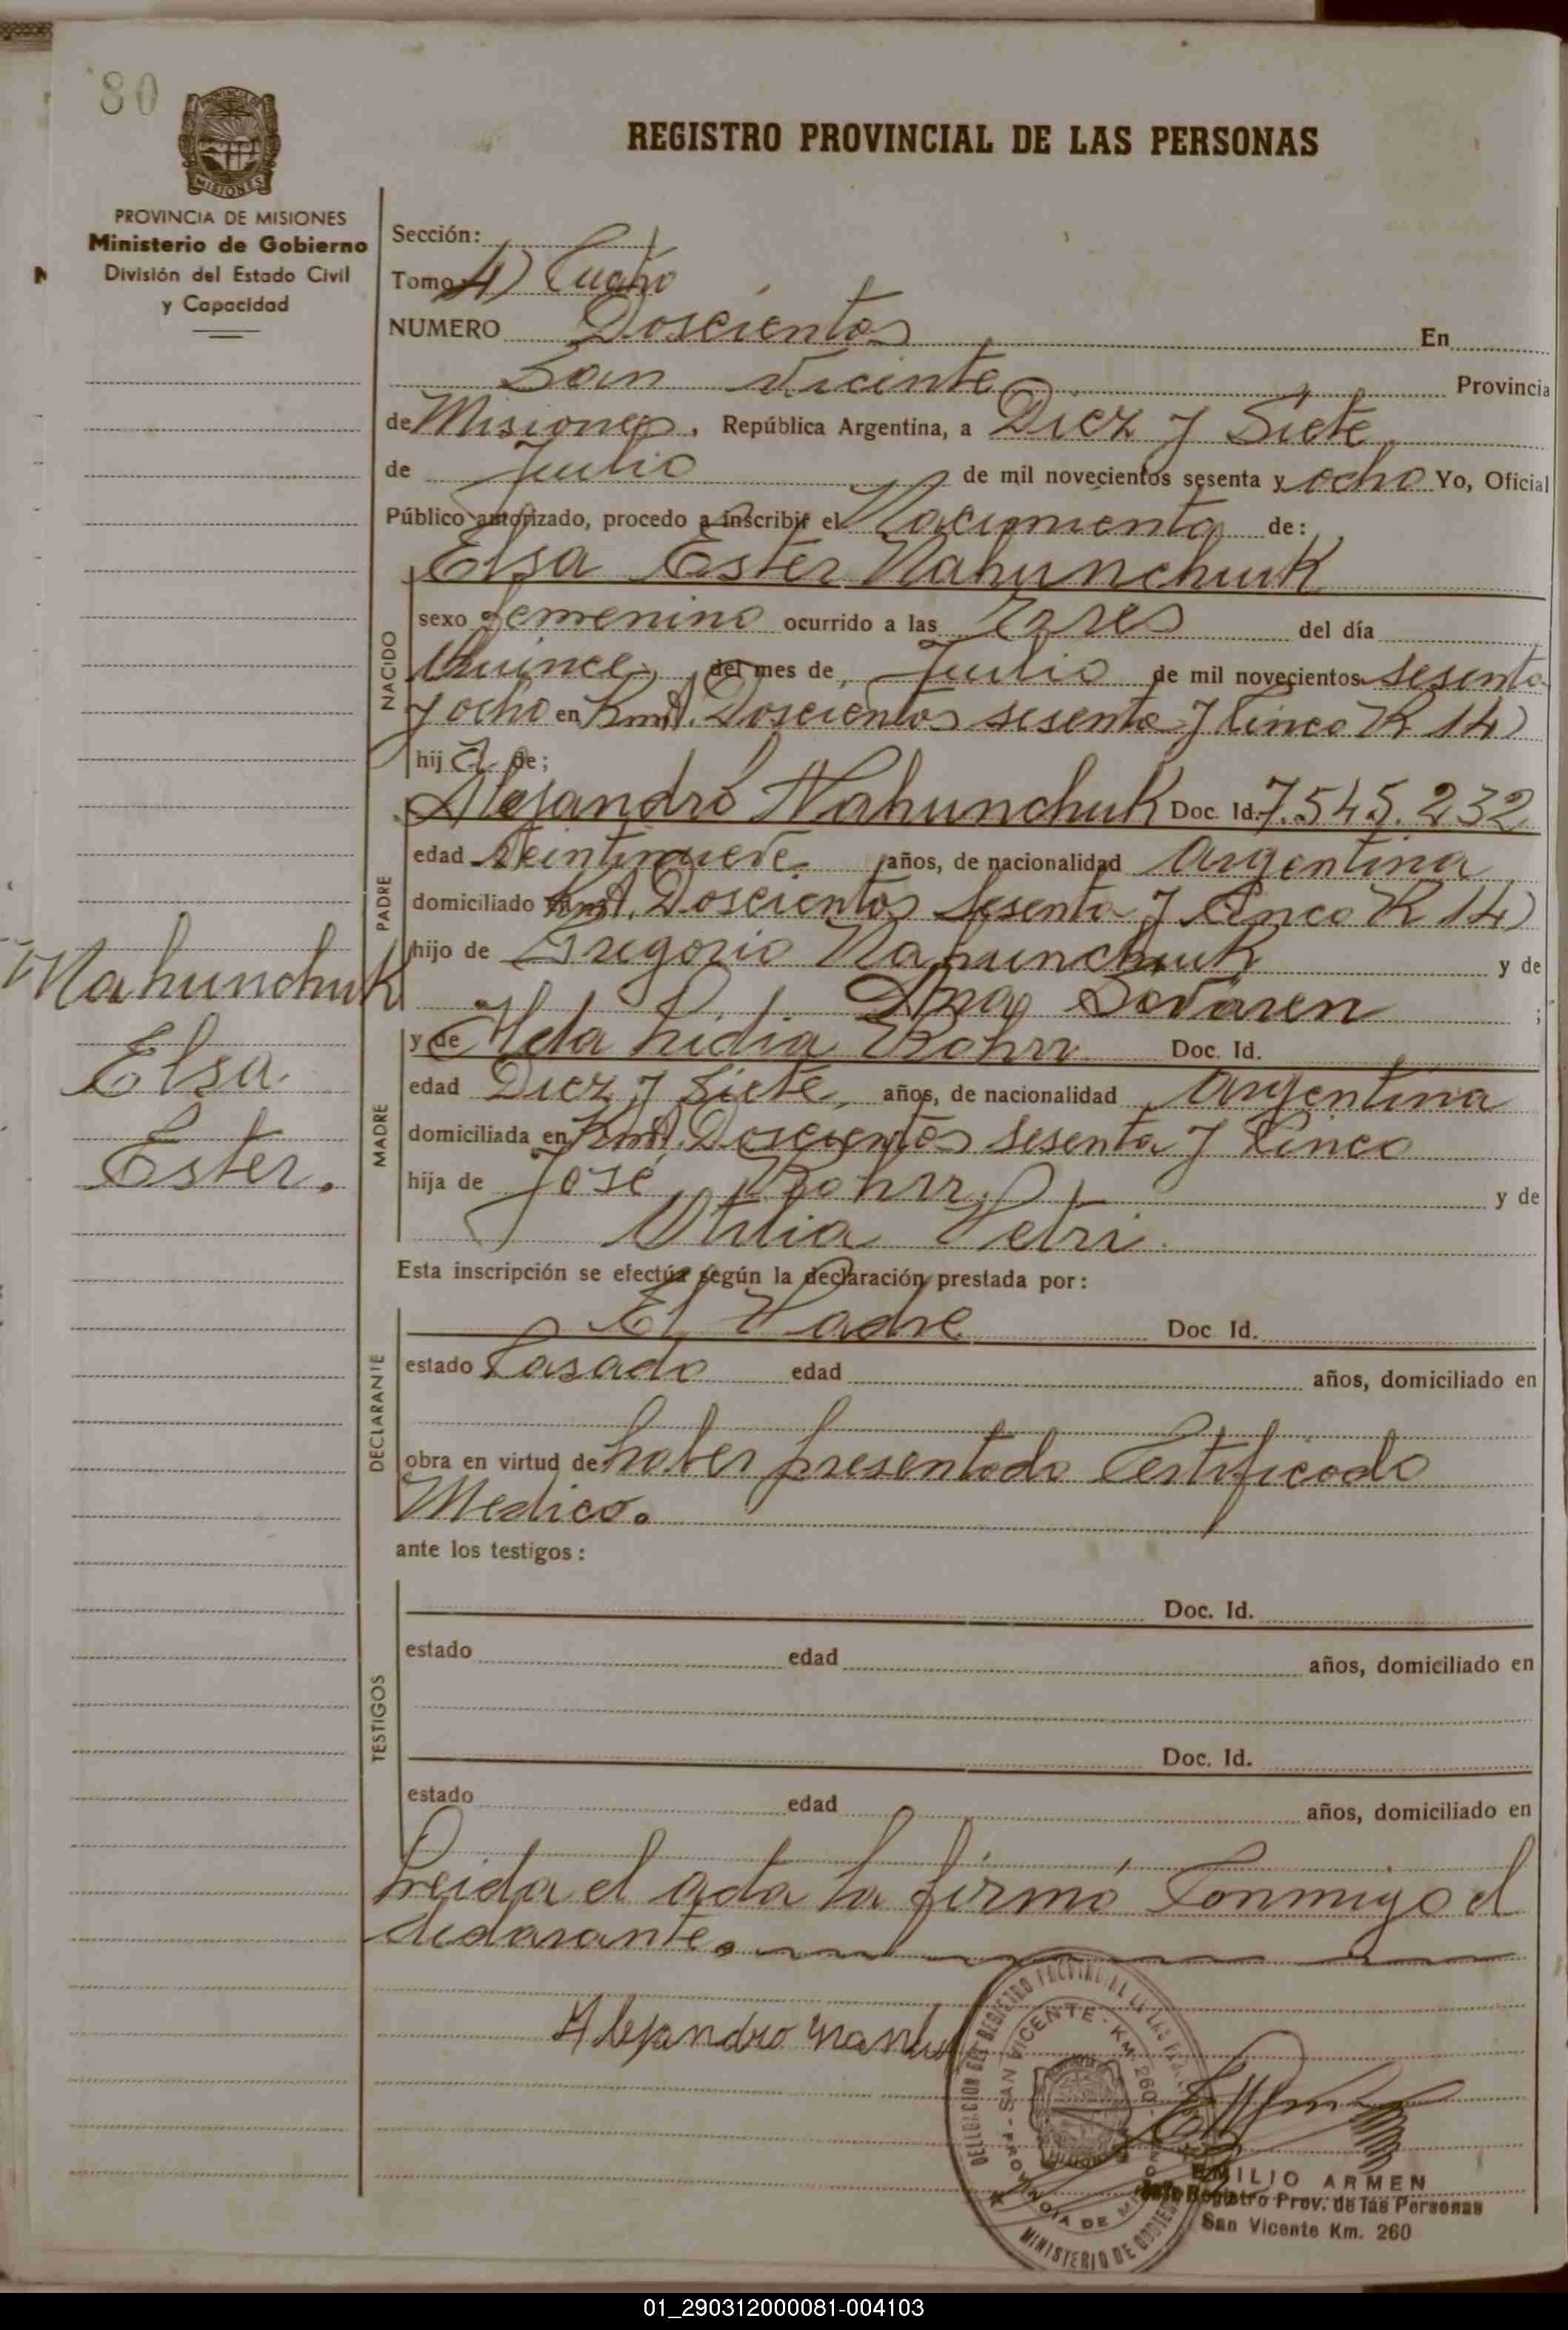 80
REGISTRO PROVINCIAL DE LAS PERSONAS
PROVINCIA DE MISIONES
MISIONES
PROVINCIA DE MISIONES
Ministerio de Gobierno
División del Estado Civil
y Capacidad
Sección:
Tomo 4) Cuarto
NUMERO Doscientos En
San Vicente Provincia
de Misiones. República Argentina, a Diez y Siete
de Julio de mil novecientos sesenta y ocho Yo, Oficial
Público autorizado, procedo a inscribir el Nacimiento de:
Elsa Ester Nahunchuk
NACIDO
sexo femenino ocurrido a las Tres del día
Quince del mes de Julio de mil novecientos sesenta
y ocho en Kmt. Doscientos sesenta y Cinco R 14)
hij a de;
PADRE
Alejandro Nahunchuk Doc. Id. 7.545.232
edad Veintinueve años, de nacionalidad Argentina
domiciliado Kmt. Doscientos Sesenta y Cinco R 14)
hijo de Gregorio Nahunchuk y de
Ana ;
Nahunchuk
Elsa
Ester.
MADRE
y de Elda Lidia Rohrr Doc. Id.
edad Diez y Siete, años, de nacionalidad Argentina
domiciliada en Kmt. Doscientos sesenta y Cinco
hija de José Rohrr y de
Otilia Petri.
Esta inscripción se efectúa según la declaración prestada por:
DECLARANTE
El Padre Doc Id.
estado Casado edad años, domiciliado en
obra en virtud de haber presentado Certificado
Medico.
ante los testigos:
TESTIGOS
Doc. Id.
estado edad años, domiciliado en
Doc. Id.
estado edad años, domiciliado en
Leida el acta la firmó Conmigo el
declarante.
Alejandro
DELEGACION DEL REGISTRO PROVINCIAL DE LAS PERSONAS
SAN VICENTE - KM. 260 - PROVINCIA DE MISIONES
MINISTERIO DE GOBIERNO
EMILIO ARMEN
Jefe Registro Prov. de las Personas
San Vicente Km. 260
01_290312000081-004103